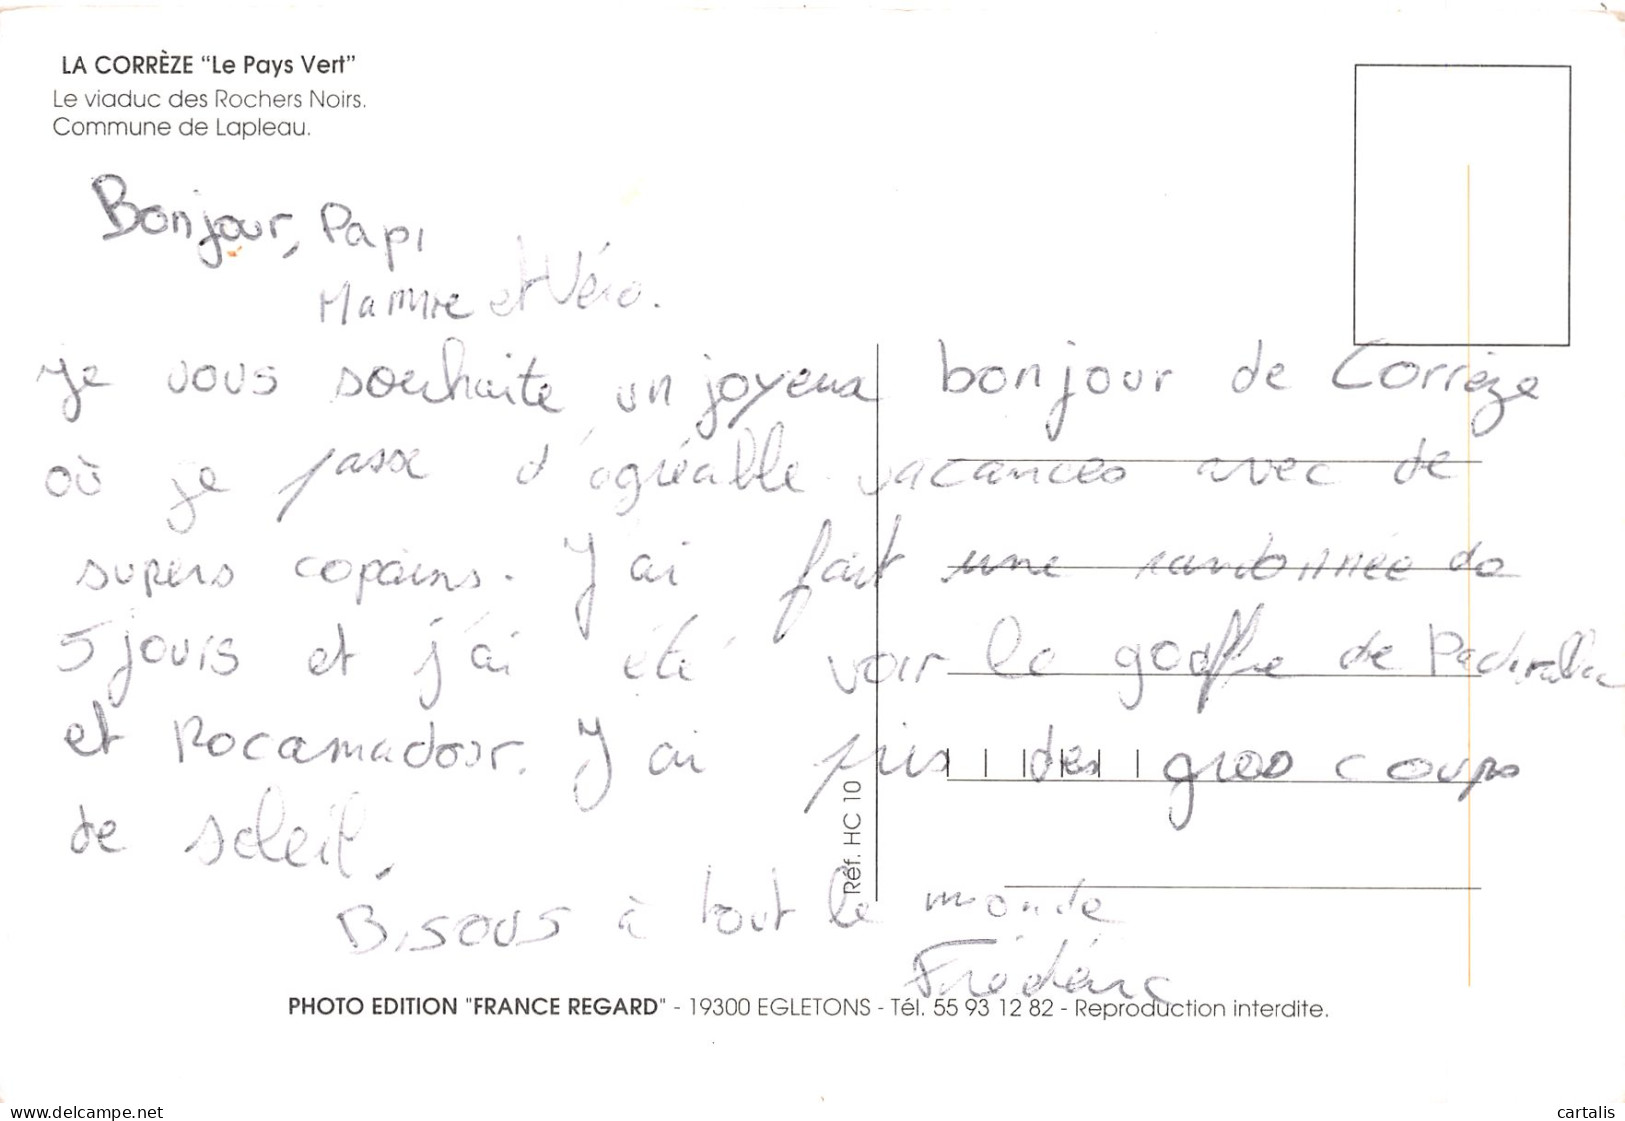 LA CORRÈZE “Le Pays Vert”
Le viaduc des Rochers Noirs.
Commune de Lapleau.
Bonjour, Papi
Mamie et Véro.
Je vous souhaite un joyeux bonjour de Corrèze
où je passe d'agréable vacances avec de
supers copains. J'ai fait une randonnée de
5 jours et j'ai été voir le gouffre de Padirallac
et Rocamadour. J'ai pris des gros coups
de soleil.
Bisous à tout le monde
Frédéric
Réf. HC 10
PHOTO EDITION "FRANCE REGARD" - 19300 EGLETONS - Tél. 55 93 12 82 - Reproduction interdite.
www.delcampe.net
cartalis